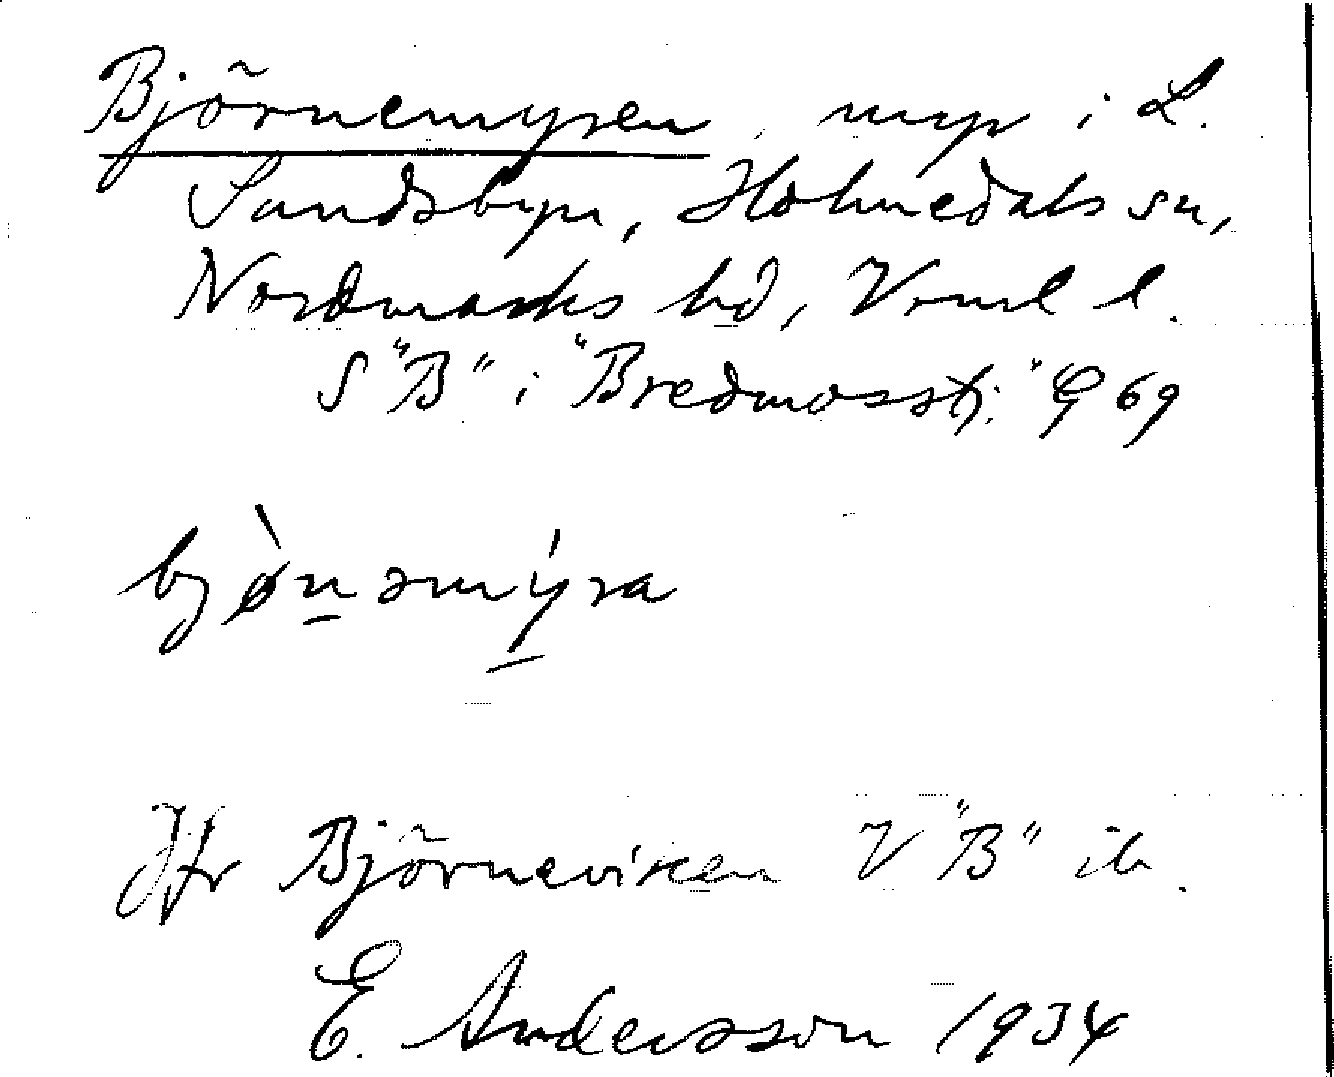 Björnemyren, myr i L.
Sundsbyn, Holmedals sn,
Nordmarks hd, Vrml l.
S "B" i "Bredmosstj:" G 69
bjø̀nəmýra
Jfr Björneviken V "B" ib.
E. Andersson 1934